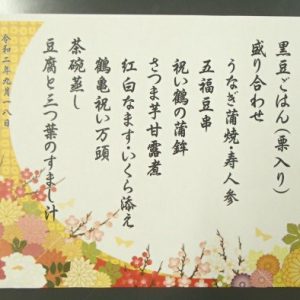 黒豆ごはん(栗入り)
盛り合わせ
うなぎ蒲焼・寿人参
五福豆串
祝い鶴の蒲鉾
さつま芋甘露煮
紅白なます・いくら添え
鶴亀祝い万頭
茶碗蒸し
豆腐と三つ葉のすまし汁
令和二年九月一八日